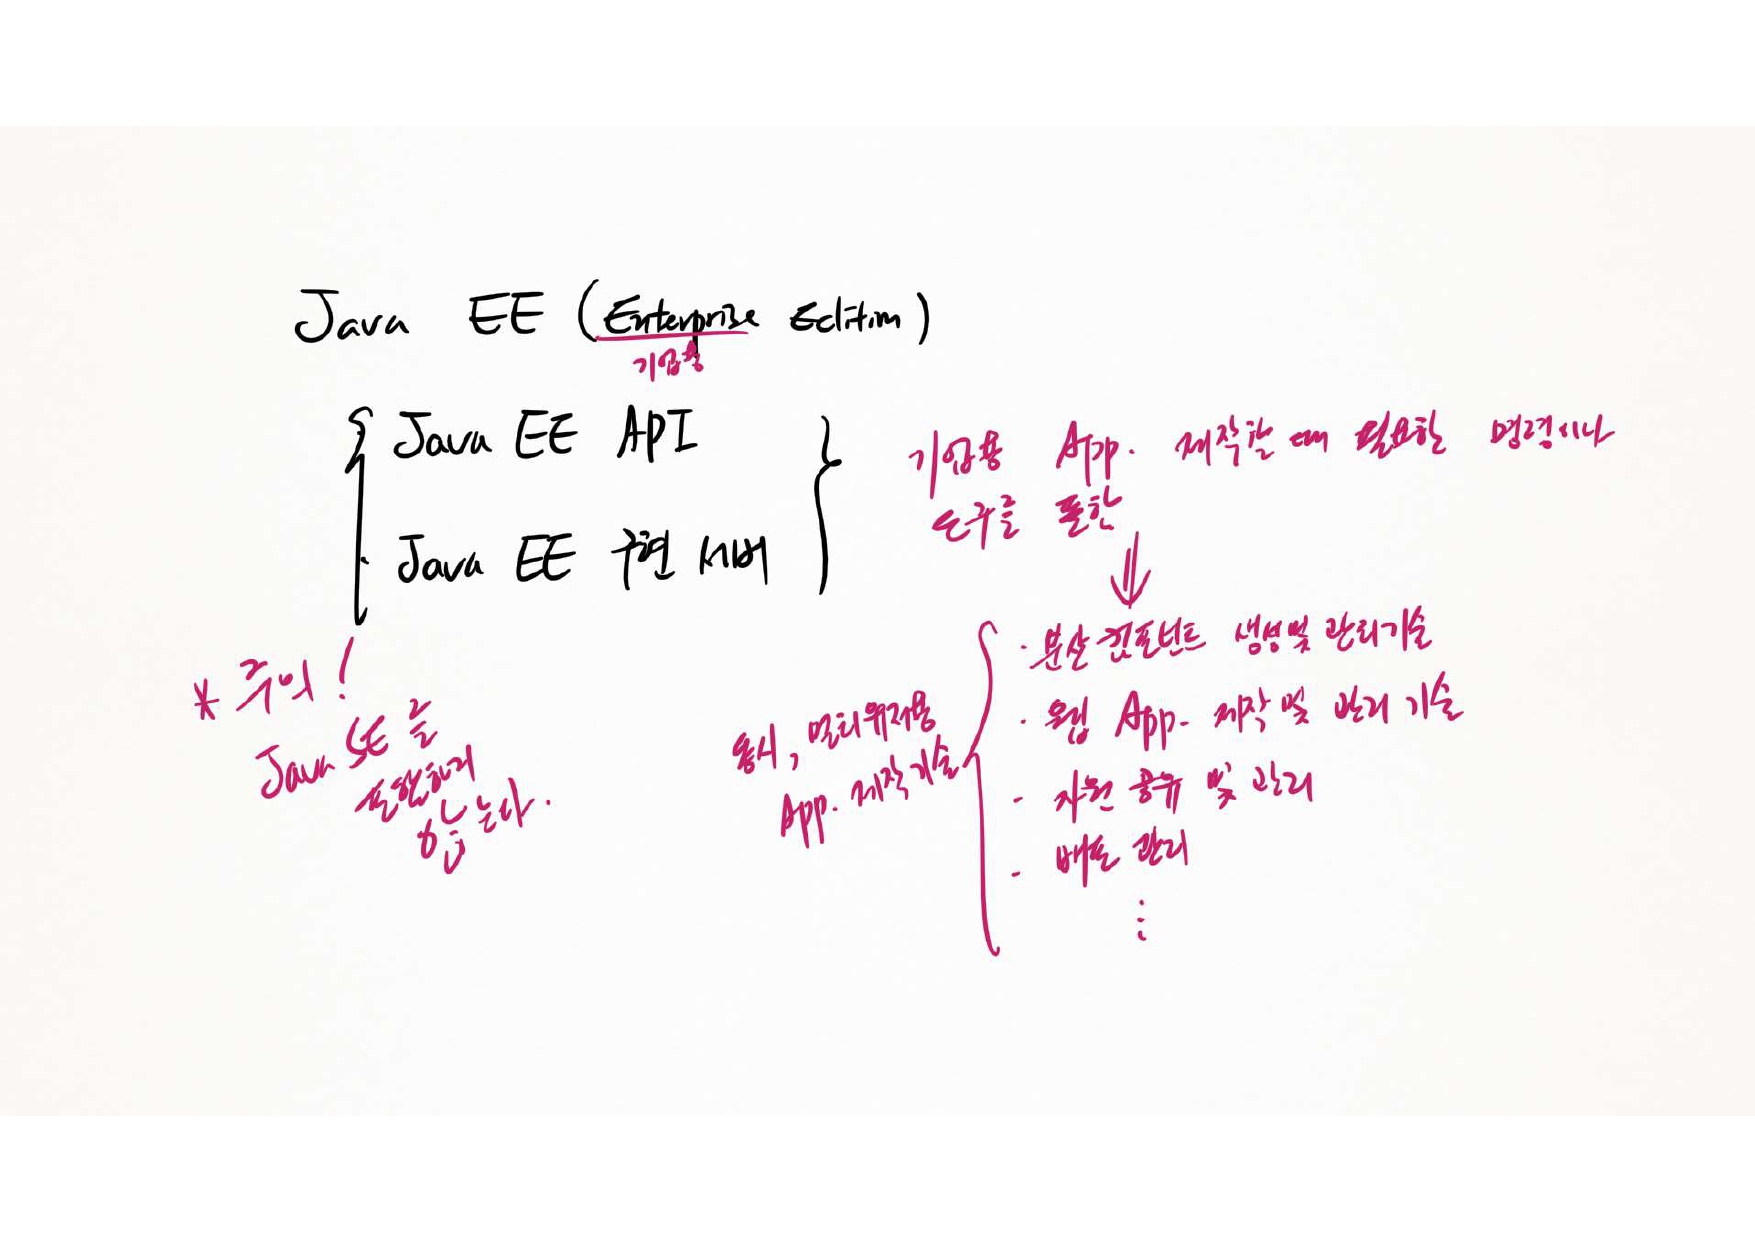 Java EE (Enterprise Edition)
기업용
Java EE API
Java EE 구현 서버
기업용 App. 제작할 때 필요한 명령이나
도구를 포함
* 주의!
Java SE를
포함하지
않는다.
동시, 멀티유저용
App. 제작 기술
· 분산 컴포넌트 생성 및 관리기술
· 웹 App. 제작 및 관리 기술
- 자원 공유 및 관리
- 배포 관리
⋮